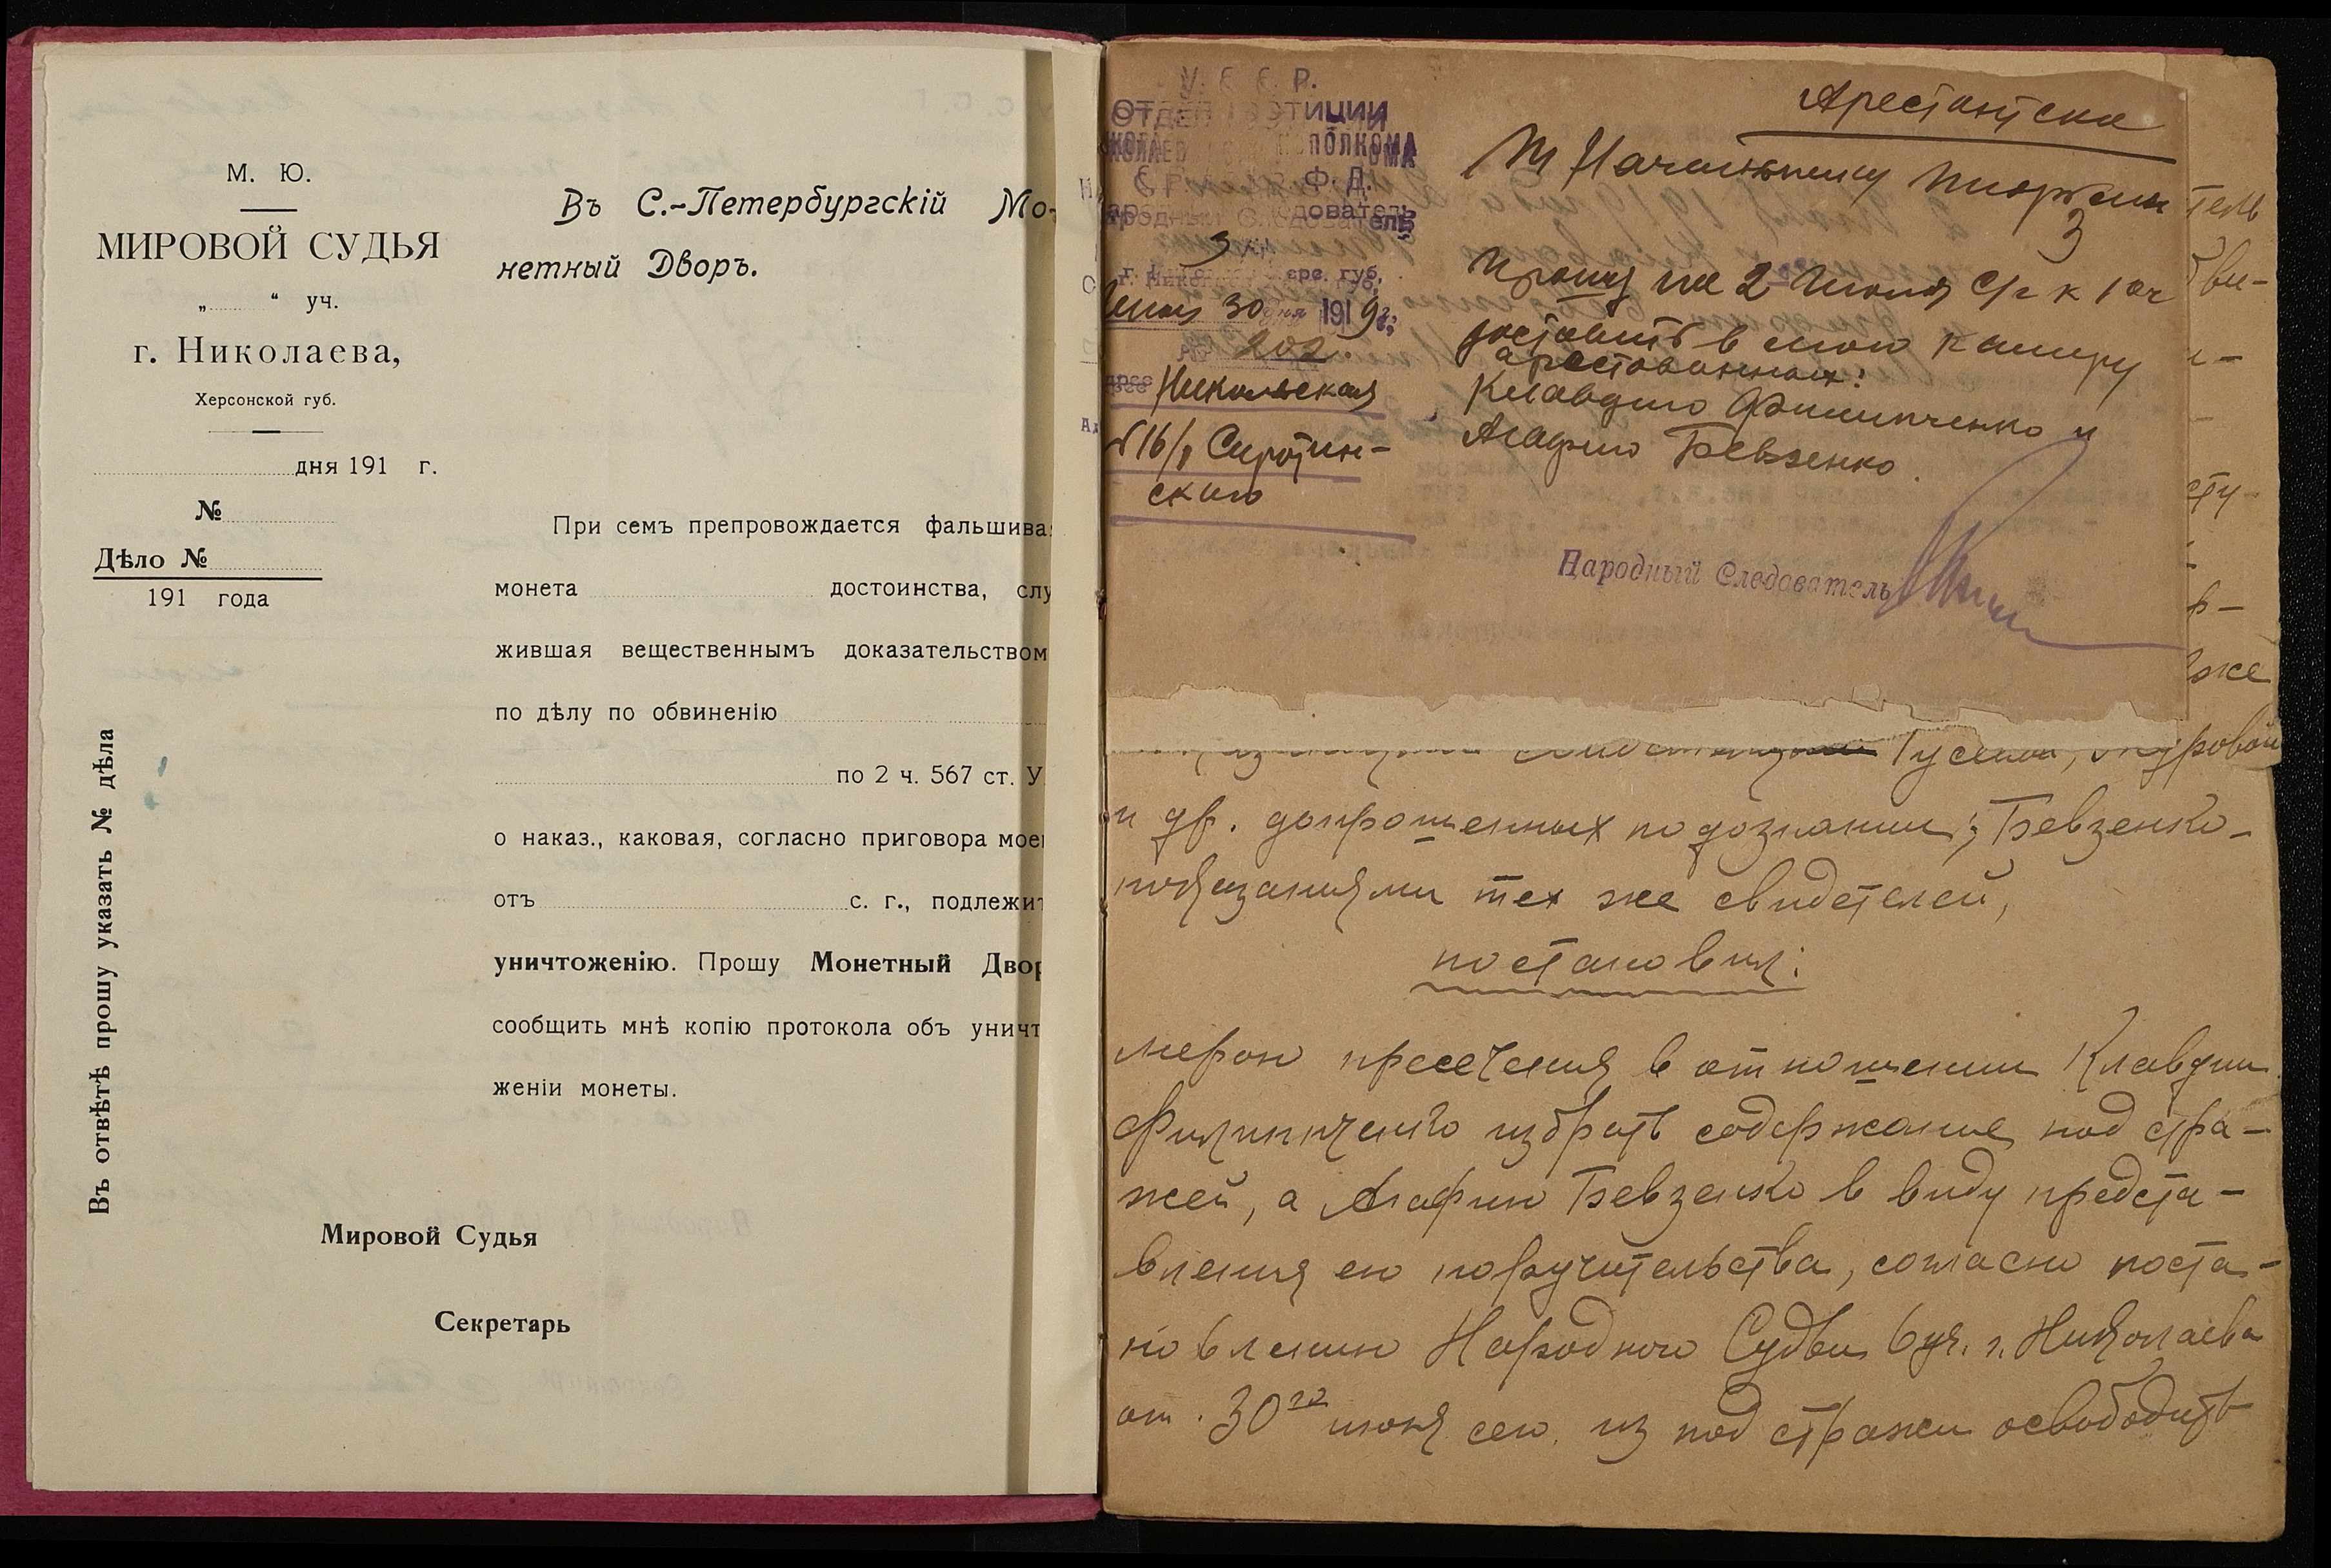 М. Ю.
МИРОВОЙ СУДЬЯ
„ “ уч.
г. Николаева,
Херсонской губ.
дня 191 г.
№
Дѣло №
191 года
Въ отвѣтѣ прошу указать № дѣла
Въ С.-Петербургскій Мо-
нетный Дворъ.
При семъ препровождается фальшива
монета достоинства, слу
жившая вещественнымъ доказательством
по дѣлу по обвиненію
по 2 ч. 567 ст. У
о наказ., каковая, согласно приговора мое
отъ с. г., подлежит
уничтоженію. Прошу Монетный Двор
сообщить мнѣ копію протокола объ уничт
женіи монеты.
Мировой Судья
Секретарь
У. С. С. Р.
ОТДЕЛ ЮСТИЦИИ
ПОЛКОМА
Р. Ф. Д.
Народный Следователь
3
июня 30 дня 1919 г.
№ 202.
Никольская
№ 16/8 Сиротин-
ского
Арестантская
Т Начальнику тюрьмы
3
Прошу на 2 июля с/г к 10 ч
доставить в мою камеру
арестованных:
Клавдию Филипченко и
Агафию Бевзенко
Народный Следователь
тель
бви-
сту-
р-
же
Гусевой,
и др. допрошенных по дознанию; Бевзенко-
показаниями тех же свидетелей,
постановил:
мерою пресечения в отношении Клавдии
Филипченко избрать содержание под стра-
жей, а Агафию Бевзенко в виду предста-
вления ею поручительства, согласно поста-
новлению Народного Судьи 6 уч. г. Николаева
от 30го июня сего, из под стражи освободить